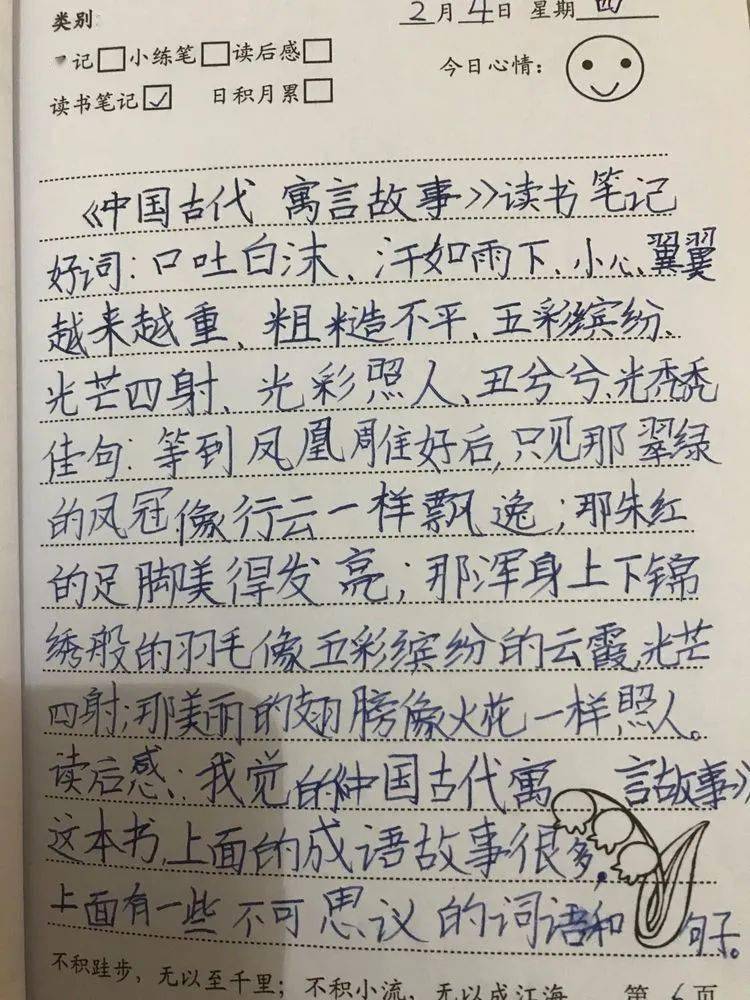 类别:
2月4日 星期四
记□小练笔□读后感□
今日心情:
读书笔记☑ 日积月累□
《中国古代 寓言故事》读书笔记
好词:口吐白沫、汗如雨下、小心翼翼
越来越重、粗糙不平、五彩缤纷、
光芒四射、光彩照人、丑兮兮、光秃秃
佳句:等到凤凰雕住好后,只见那翠绿
的凤冠像行云一样飘逸;那朱红
的足脚美得发亮;那浑身上下锦
绣般的羽毛像五彩缤纷的云霞,光芒
四射;那美丽的翅膀像火花一样,照人。
读后感:我觉的《中国古代寓 言故事》
这本书,上面的成语故事很多,
上面有一些不可思议的词语和 句子。
不积跬步,无以至千里;不积小流,无以成江海 第6页